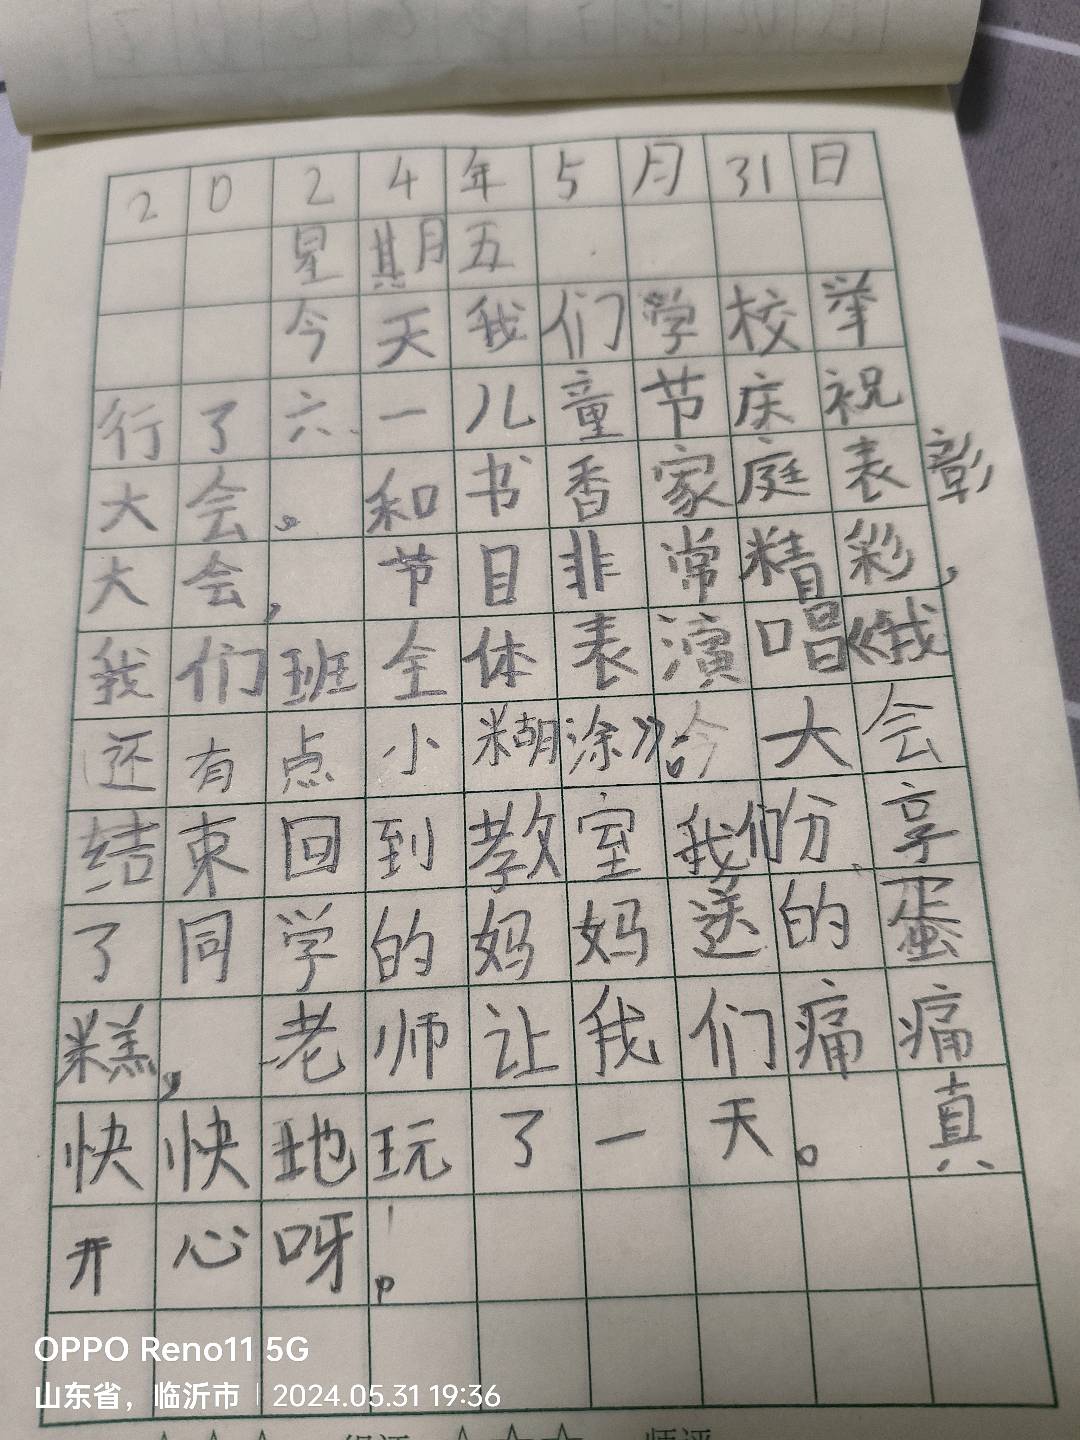 2024年5月31日
星期五
今天我们学校举
行了六一儿童节庆祝
大会。和书香家庭表彰
大会,节目非常精彩,
我们班全体表演唱《我
还有点小糊涂》。今大会
结束回到教室我们份享
了同学的妈妈送的蛋
糕,老师让我们痛痛
快快地玩了一天。真
开心呀!
OPPO Reno11 5G
山东省，临沂市 | 2024.05.31 19:36